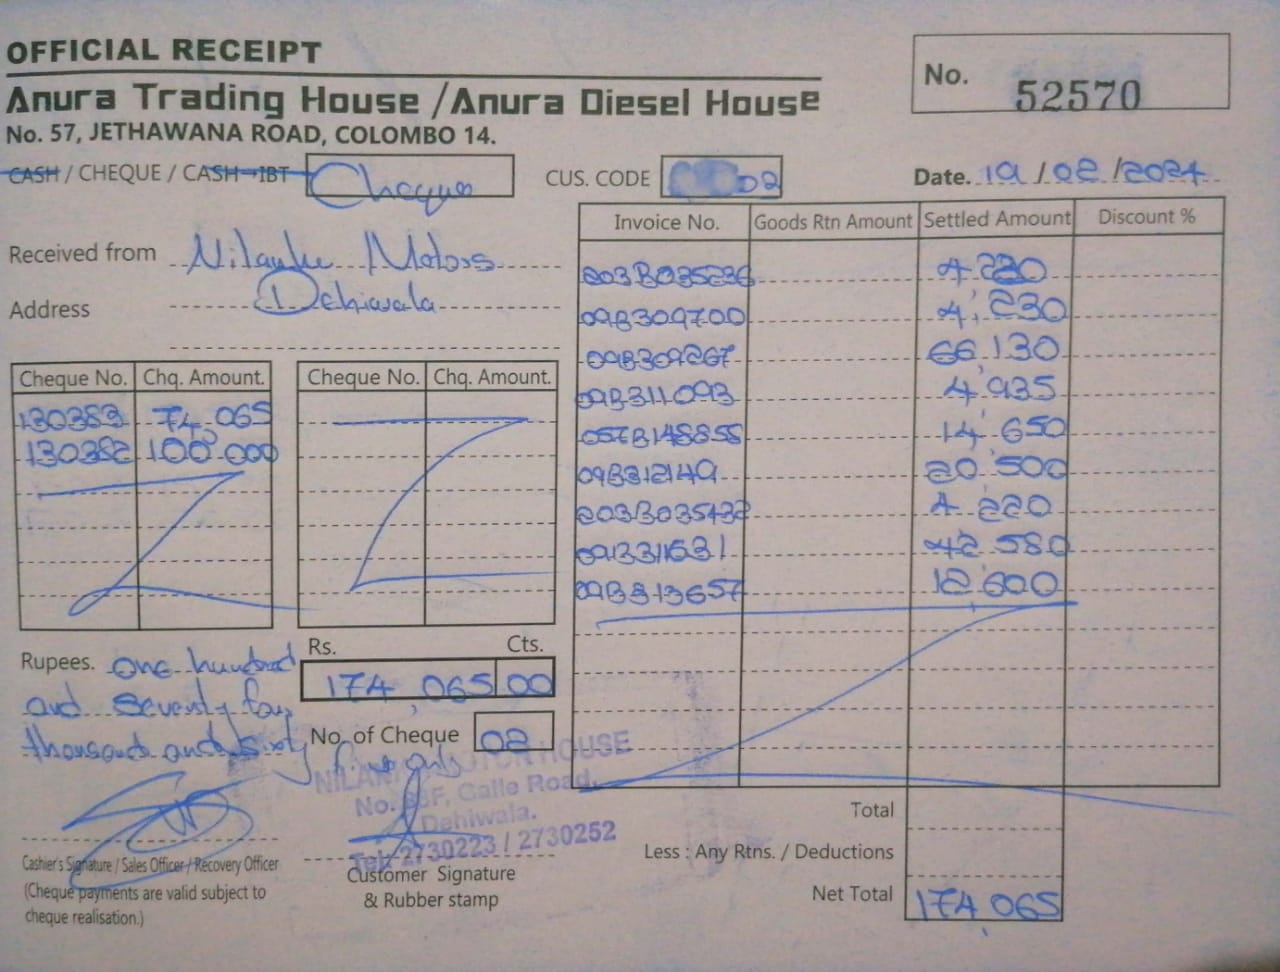 OFFICIAL RECEIPT
Anura Trading House / Anura Diesel House
No. 57, JETHAWANA ROAD, COLOMBO 14.
No. 52570
CASH / CHEQUE / CASH-IBT Cheque
CUS. CODE 02
Date. 19/02/2024
Received from Nilanka Motors
Address Dehiwala
Cheque No. Chq. Amount.
130383 74,065
130382 100 000
Cheque No. Chq. Amount.
Invoice No. Goods Rtn Amount Settled Amount Discount %
203B035236 4 220
09B309700 4,230
09B309267 66 130
09B311093 4,935
057B148855 14,650
09B312149 20,500
203B035432 4 220
09B311631 42 580
09B313657 12,600
Rupees. One hundred
and Seventy four
thousand and sixty five only
Rs. Cts.
174,065 00
No. of Cheque 02
NILANKA MOTOR HOUSE
Galle Road,
Dehiwala.
Tel: 2730223 / 2730252
Cashier's Signature / Sales Officer / Recovery Officer
(Cheque payments are valid subject to
cheque realisation.)
Customer Signature
& Rubber stamp
Total
Less : Any Rtns. / Deductions
Net Total 174,065